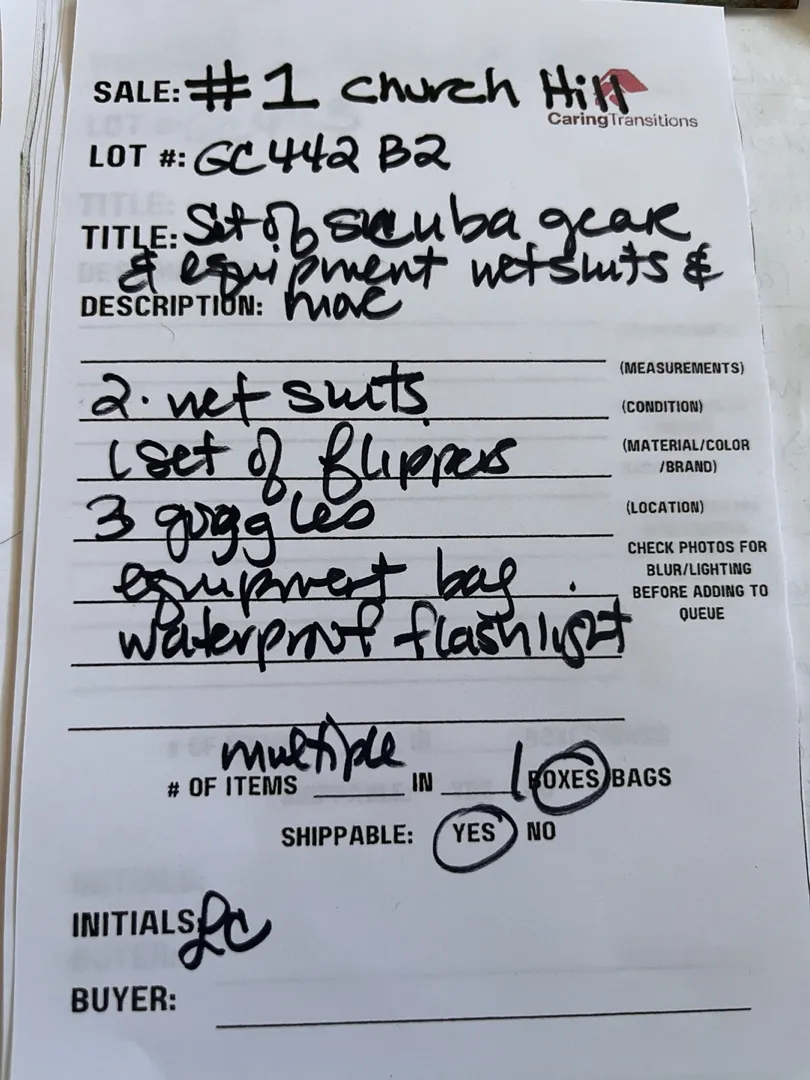 SALE: #1 Church Hill
CaringTransitions
LOT #: GC442 B2
TITLE: Set of scuba gear
& equipment wetsuits &
DESCRIPTION: more
(MEASUREMENTS)
2. wet suits
(CONDITION)
1 set of flippers
(MATERIAL/COLOR
/BRAND)
3 goggles
(LOCATION)
equipment bag
CHECK PHOTOS FOR
BLUR/LIGHTING
BEFORE ADDING TO
QUEUE
waterproof flashlight
# OF ITEMS multiple IN 1 BOXES/BAGS
SHIPPABLE: YES NO
INITIALS: LC
BUYER: